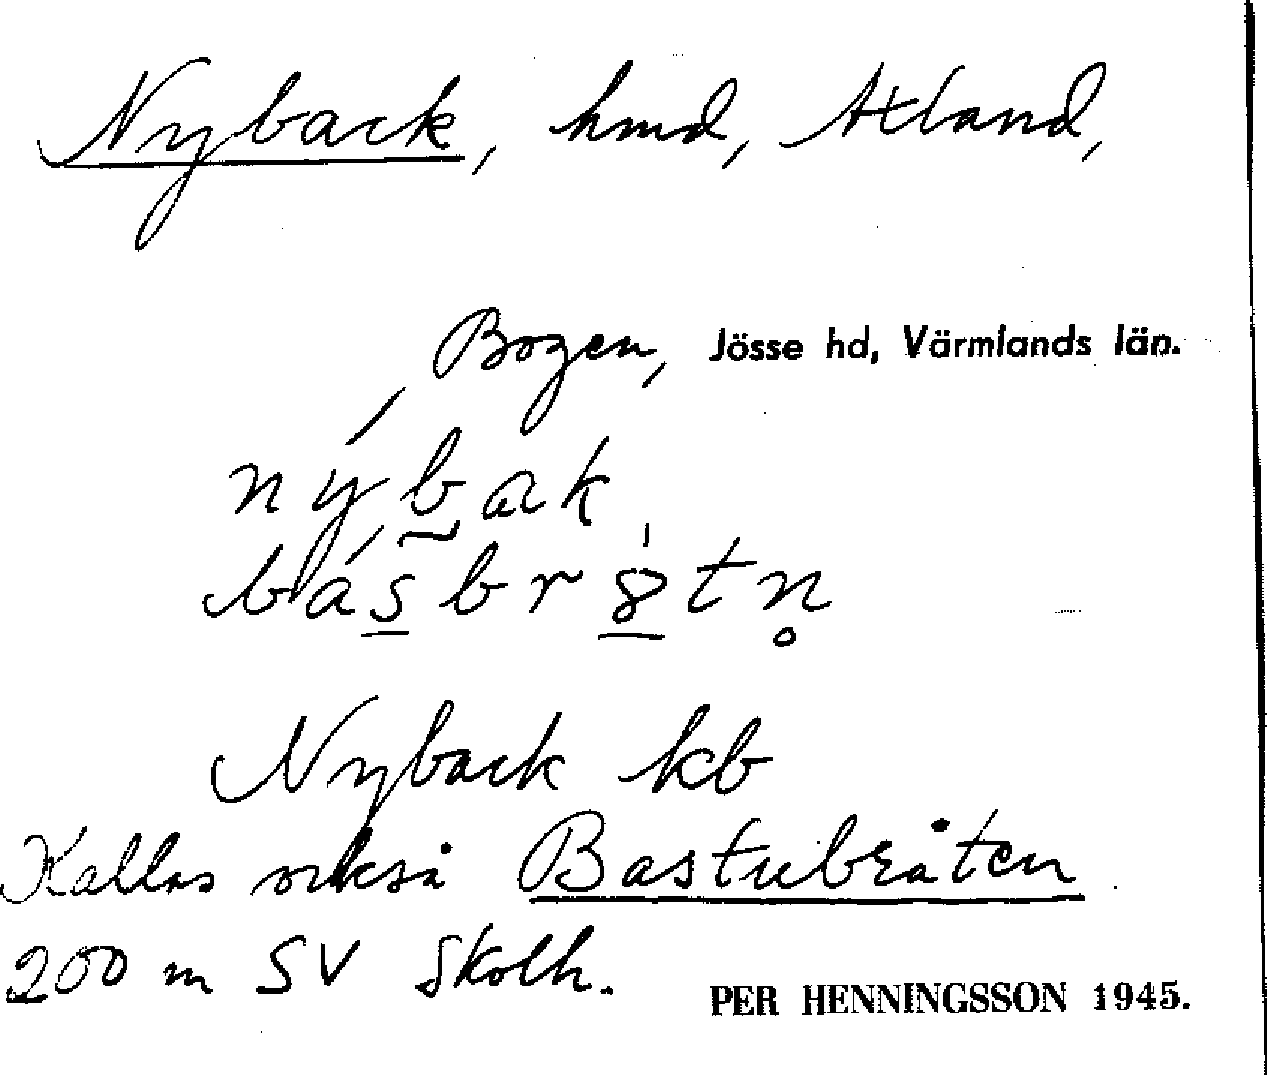 Nyback, hmd, Utland,
Bogen, Jösse hd, Värmlands län.
nýbak
báṣbrs̱tn̥
Nyback kb
Kallas också Bastubråten
200 m SV Skolh.
PER HENNINGSSON 1945.